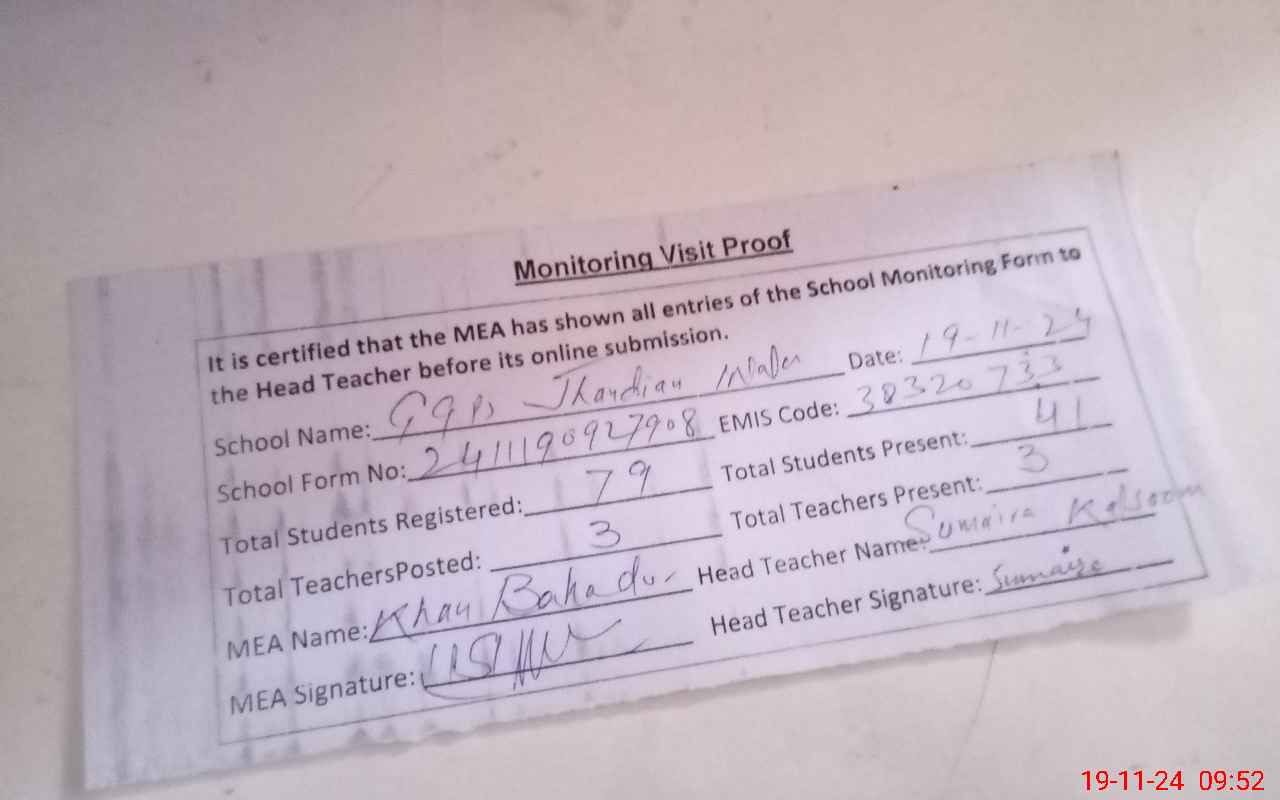 Monitoring Visit Proof
It is certified that the MEA has shown all entries of the School Monitoring Form to
the Head Teacher before its online submission.
School Name: GGPS Jhandian Wala Date: 19-11-24
School Form No: 24111190927908 EMIS Code: 38320733
Total Students Registered: 79 Total Students Present: 41
Total TeachersPosted: 3 Total Teachers Present: 3
MEA Name: Khan Bahadur Head Teacher Name: Sumaira Kalsoom
MEA Signature: Head Teacher Signature: Sumaira
19-11-24 09:52